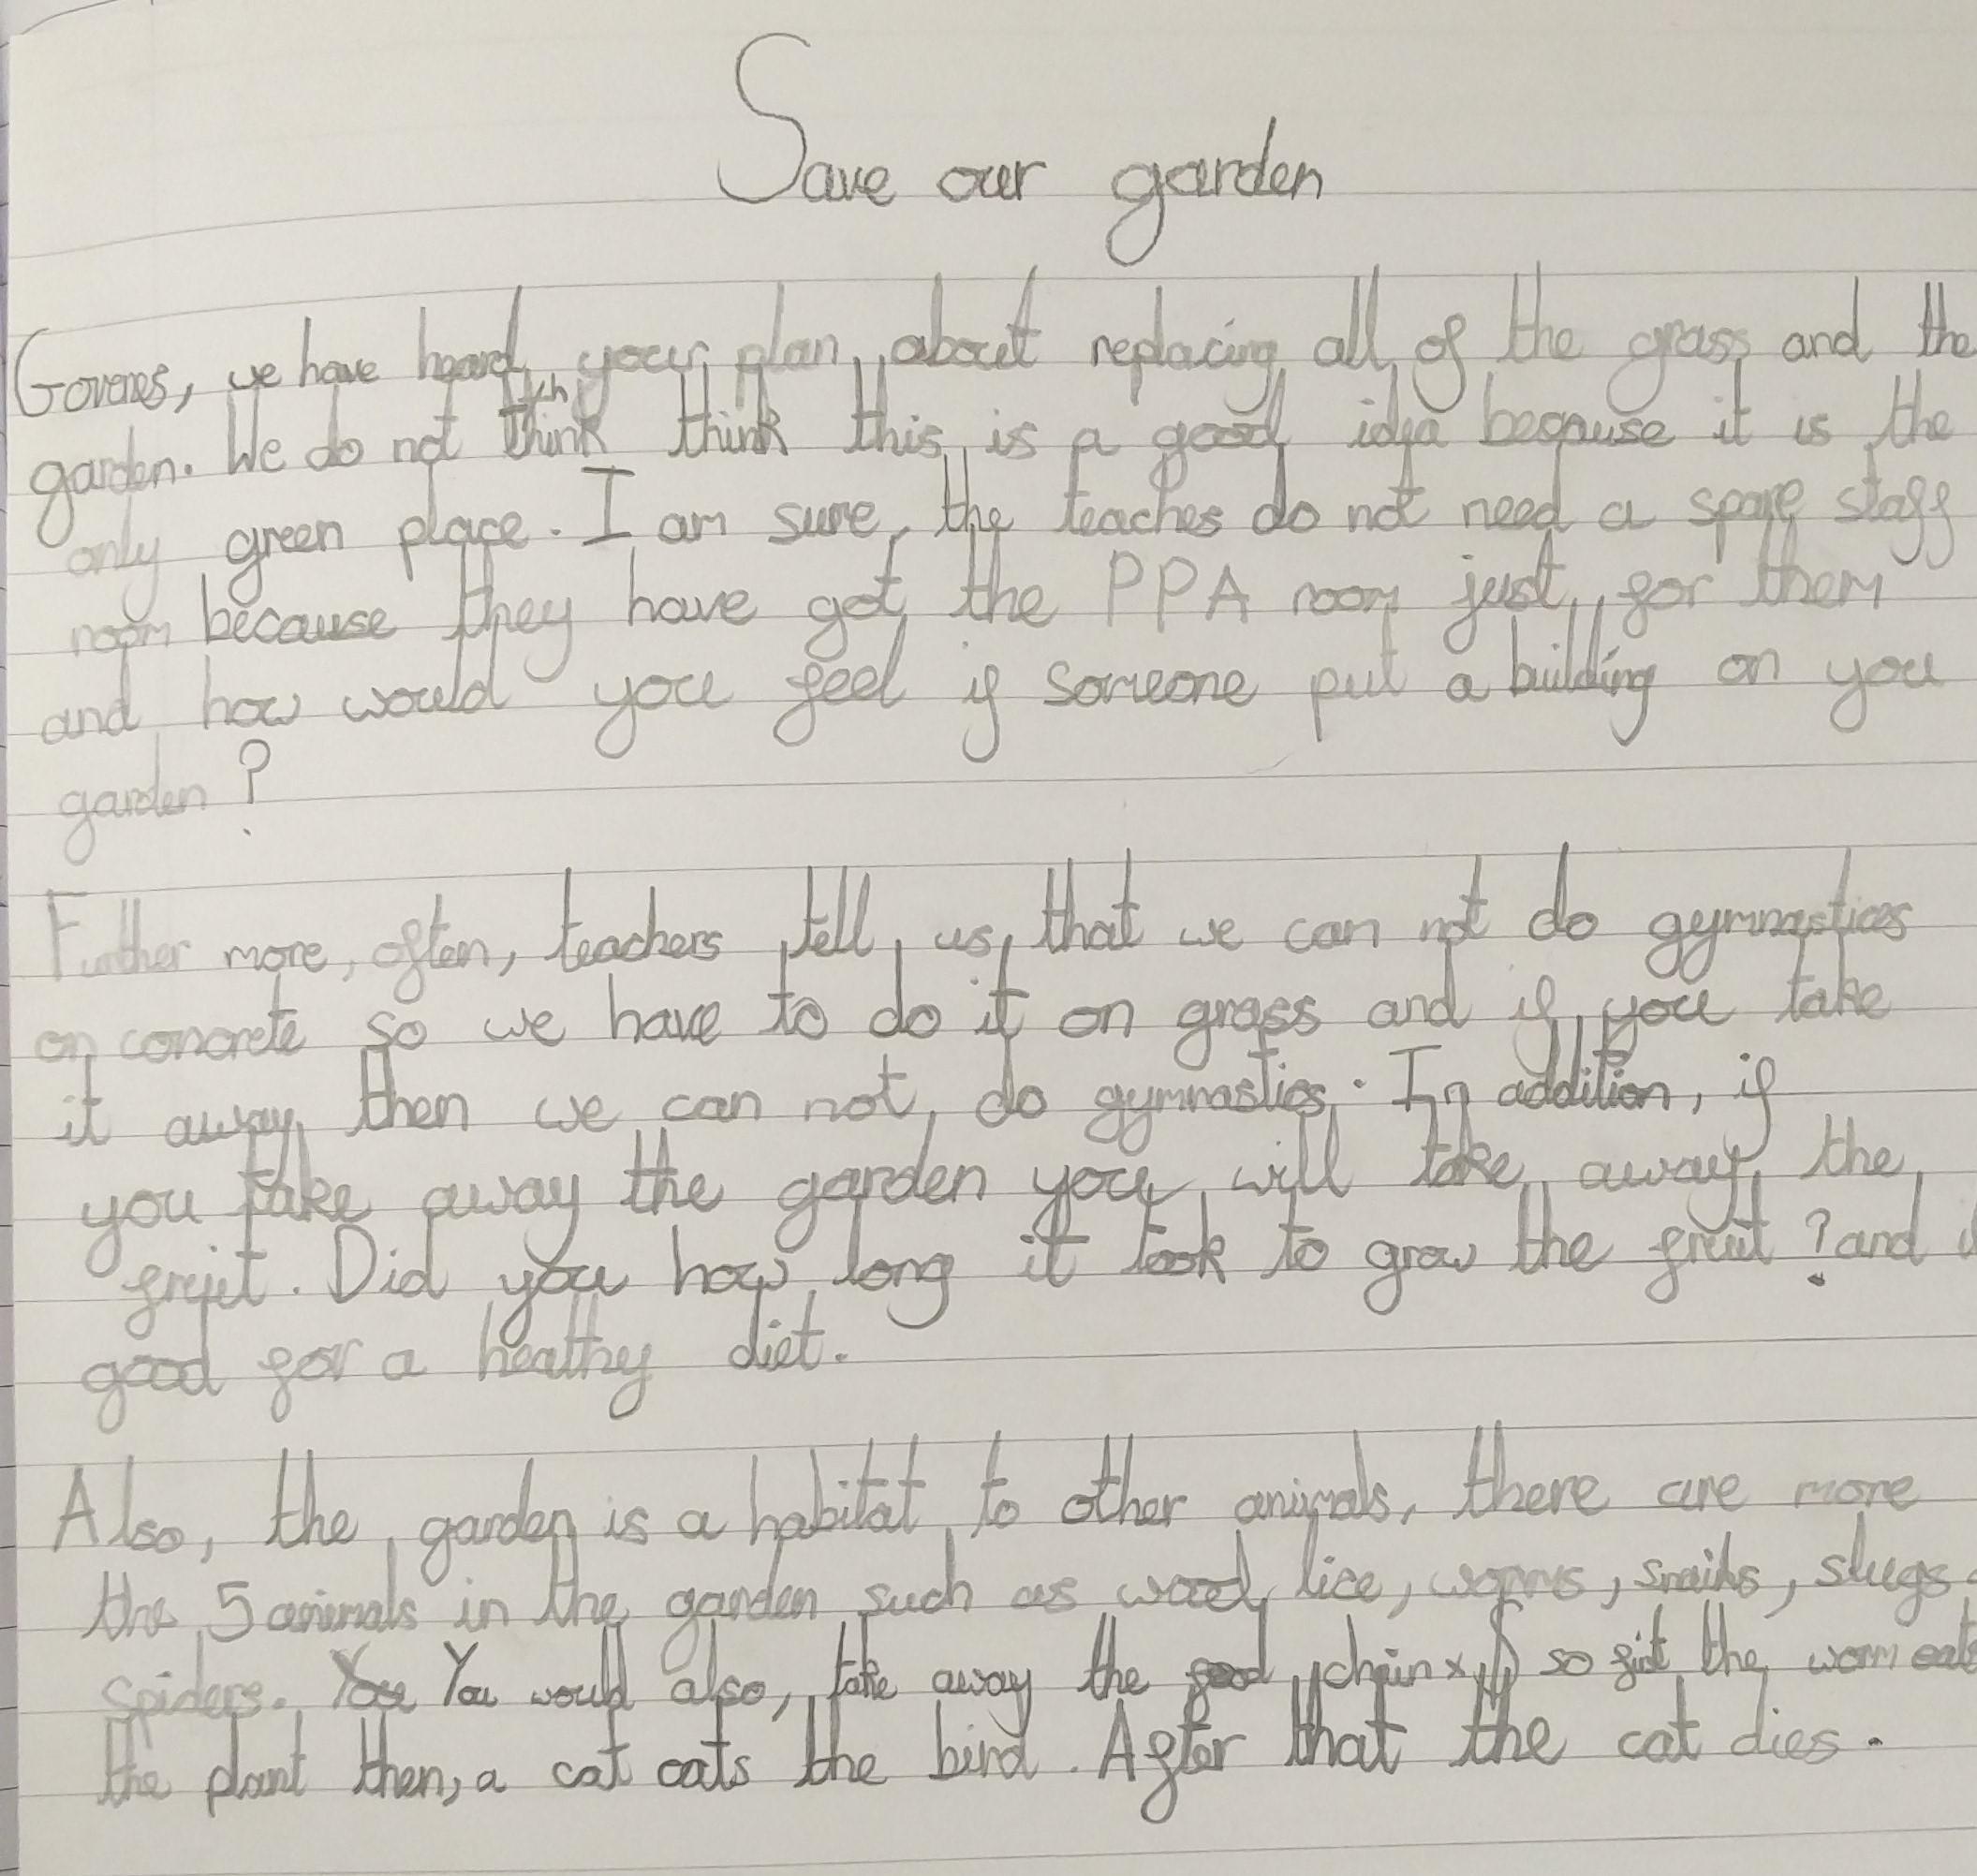 Save our garden
Goveners, we have heard your plan about replacing all of the grass and the
garden. We do not think think this is a good idea because it is the
only green place. I am sure the teaches do not need a spare staff
room because they have got the PPA room just for them
and how would you feel if someone put a building on you
garden?
Further more, often, teachers tell us that we can not do gymnastics
on concrete so we have to do it on grass and if you take
it away then we can not do gymnastics. In addition, if
you take away the garden you will take away the
fruit. Did you how long it took to grow the fruit? and
good for a healthy diet.
Also, the garden is a habitat to other animals, there are more
the 5 animals in the garden such as wood lice, worms, snails, slugs
spiders. You would also, take away the food chain so first the worm eats
the plant then, a cat eats the bird. After that the cat dies.